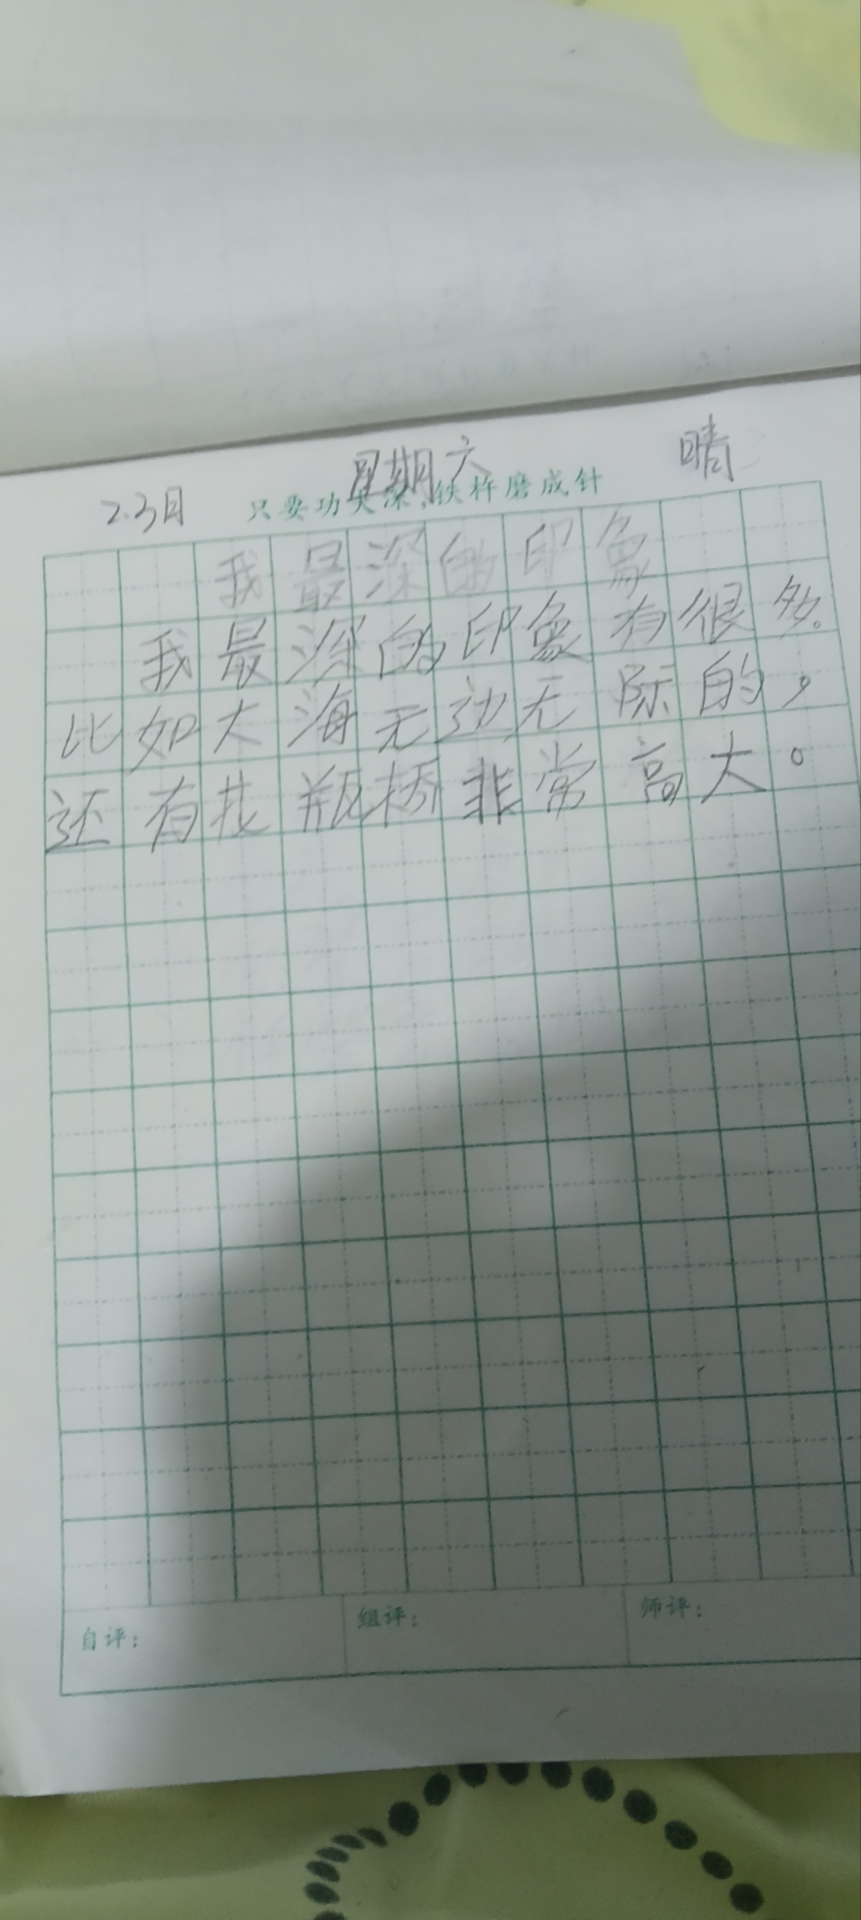 2.3日 星期六 晴
只要功夫深,铁杵磨成针
我最深的印象
我最深的印象有很多。
比如大海无边无际的,
还有找瓶桥非常高大。
自评: 组评: 师评: